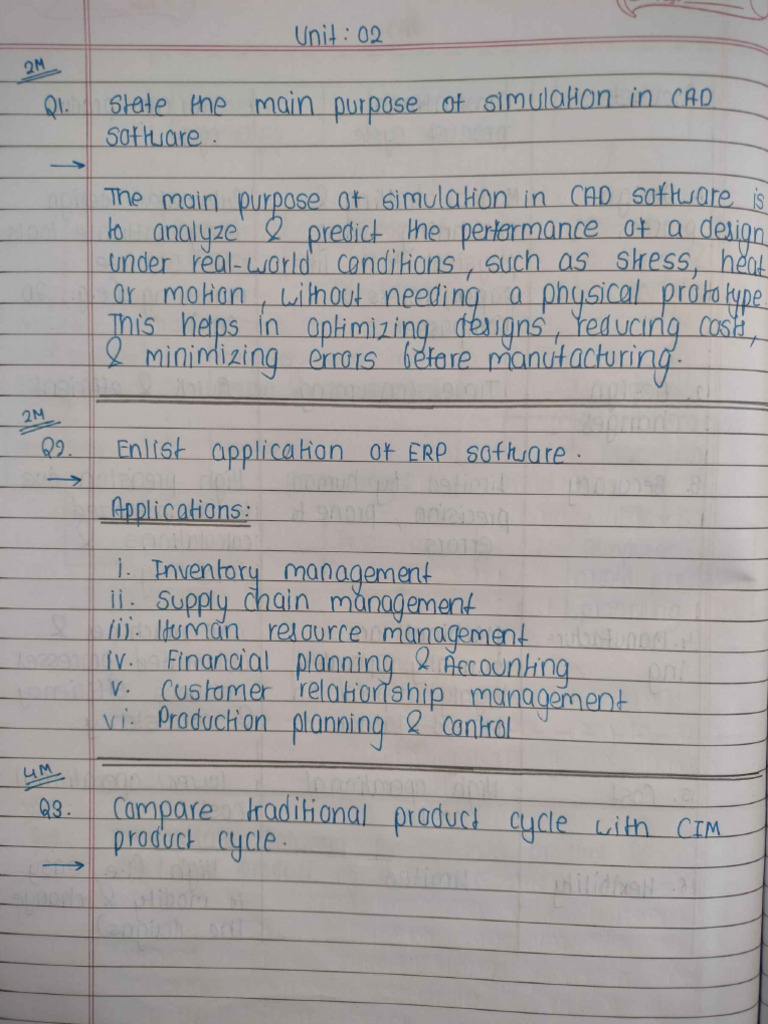 Unit : 02
2M
Q1. State the main purpose of simulation in CAD
software.
→
The main purpose of simulation in CAD software is
to analyze & predict the performance of a design
under real-world conditions, such as stress, heat
or motion, without needing a physical prototype.
This helps in optimizing designs, reducing costs,
& minimizing errors before manufacturing.
2M
Q2. Enlist application of ERP software.
→
Applications:
i. Inventory management
ii. Supply chain management
iii. Human resource management
iv. Financial planning & Accounting
v. Customer relationship management
vi. Production planning & control
4M
Q3. Compare traditional product cycle with CIM
product cycle.
→